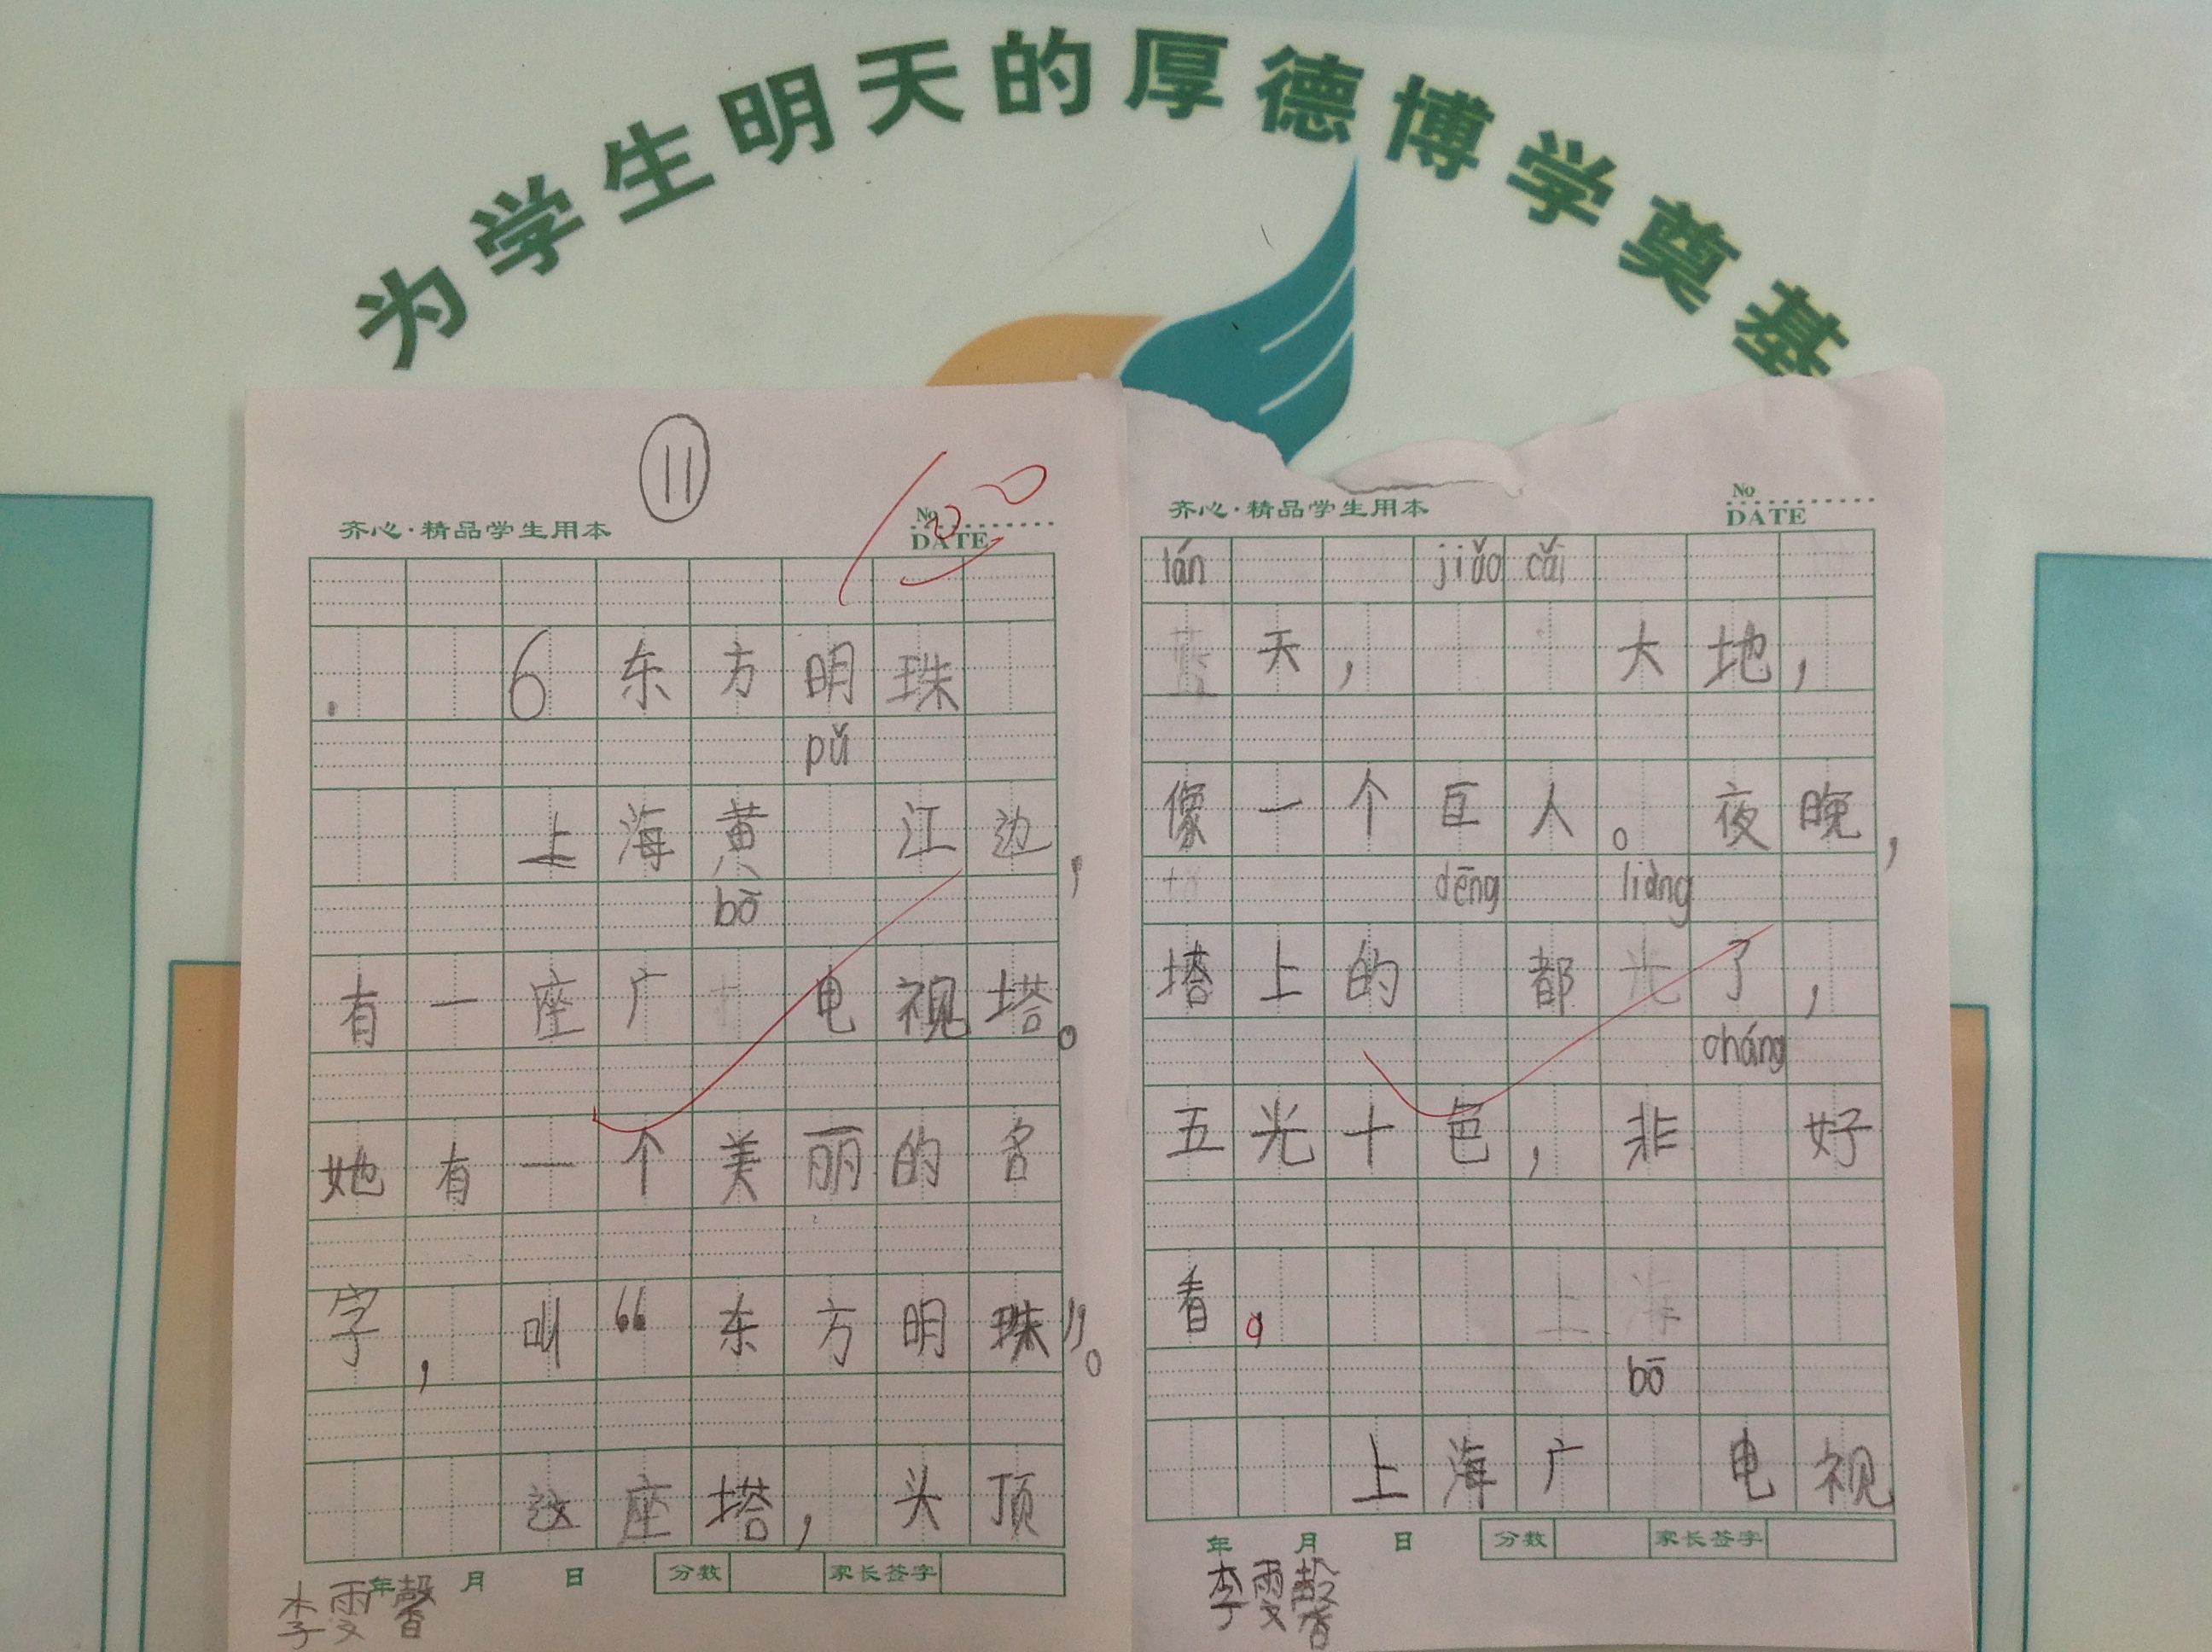 为学生明天的厚德博学奠基
11
100
齐心·精品学生用本
No
DATE
6 东方明珠
pǔ
上海黄 江边,
bō
有一座广 电视塔。
她有一个美丽的名
字,叫“东方明珠”。
这座塔,头顶
年 月 日 分数 家长签字
李雯馨
齐心·精品学生用本
No
DATE
lán jiǎo cǎi
蓝天, 大地,
像一个巨人。夜晚,
dēng liàng
塔上的 都光了,
cháng
五光十色,非 好
看。
上海
bō
上海广 电视
年 月 日 分数 家长签字
李雯馨